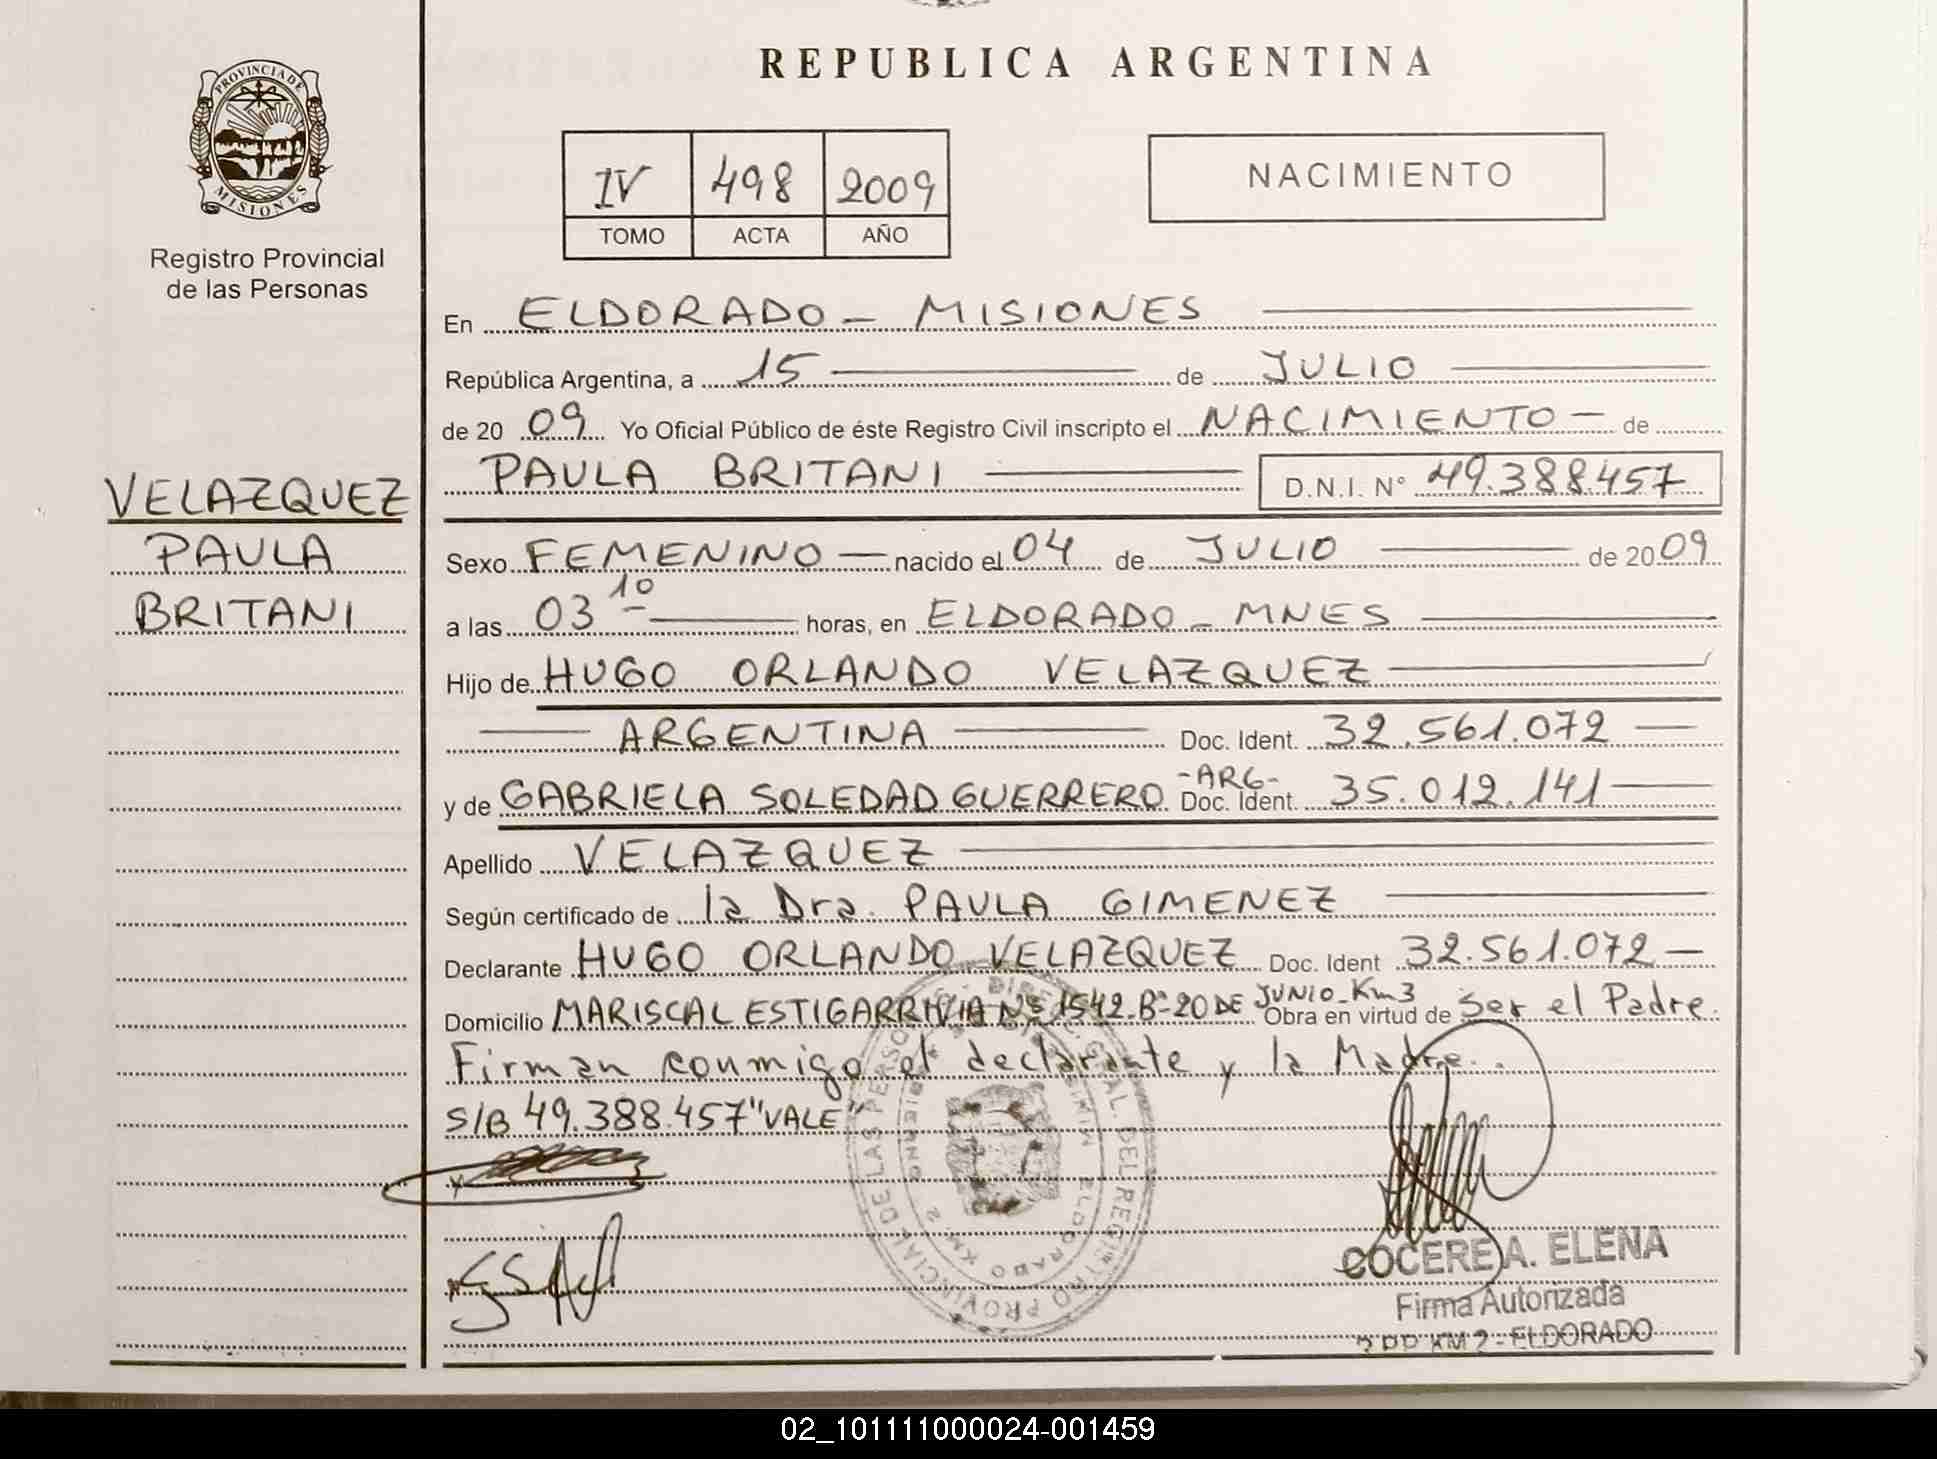 REPUBLICA ARGENTINA
PROVINCIA DE
MISIONES
Registro Provincial
de las Personas
IV 498 2009
TOMO ACTA AÑO
NACIMIENTO
VELAZQUEZ
PAULA
BRITANI
En ELDORADO - MISIONES
República Argentina, a 15 de JULIO
de 20 09 Yo Oficial Público de éste Registro Civil inscripto el NACIMIENTO - de
PAULA BRITANI D.N.I. N° 49.388.457
Sexo FEMENINO nacido el 04 de JULIO de 20 09
a las 03 10 horas, en ELDORADO - MNES
Hijo de HUGO ORLANDO VELAZQUEZ
ARGENTINA Doc. Ident. 32.561.072
y de GABRIELA SOLEDAD GUERRERO -ARG- Doc. Ident. 35.012.141
Apellido VELAZQUEZ
Según certificado de la Dra. PAULA GIMENEZ
Declarante HUGO ORLANDO VELAZQUEZ Doc. Ident 32.561.072
Domicilio MARISCAL ESTIGARRIVIA Nº 1542. Bº 20 DE JUNIO - Km3 Obra en virtud de Ser el Padre.
Firman conmigo el declarante y la Madre.
S/B 49.388.457 "VALE"
COCERE A. ELENA
Firma Autorizada
KM 2 - ELDORADO
02_101111000024-001459